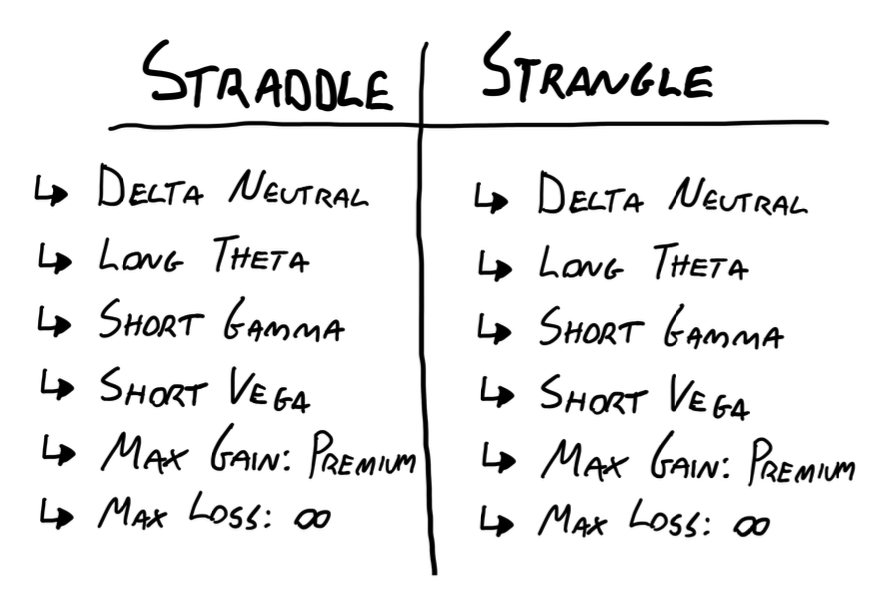 STRADDLE
↳ DELTA NEUTRAL
↳ LONG THETA
↳ SHORT GAMMA
↳ SHORT VEGA
↳ MAX GAIN: PREMIUM
↳ MAX LOSS: ∞
STRANGLE
↳ DELTA NEUTRAL
↳ LONG THETA
↳ SHORT GAMMA
↳ SHORT VEGA
↳ MAX GAIN: PREMIUM
↳ MAX LOSS: ∞